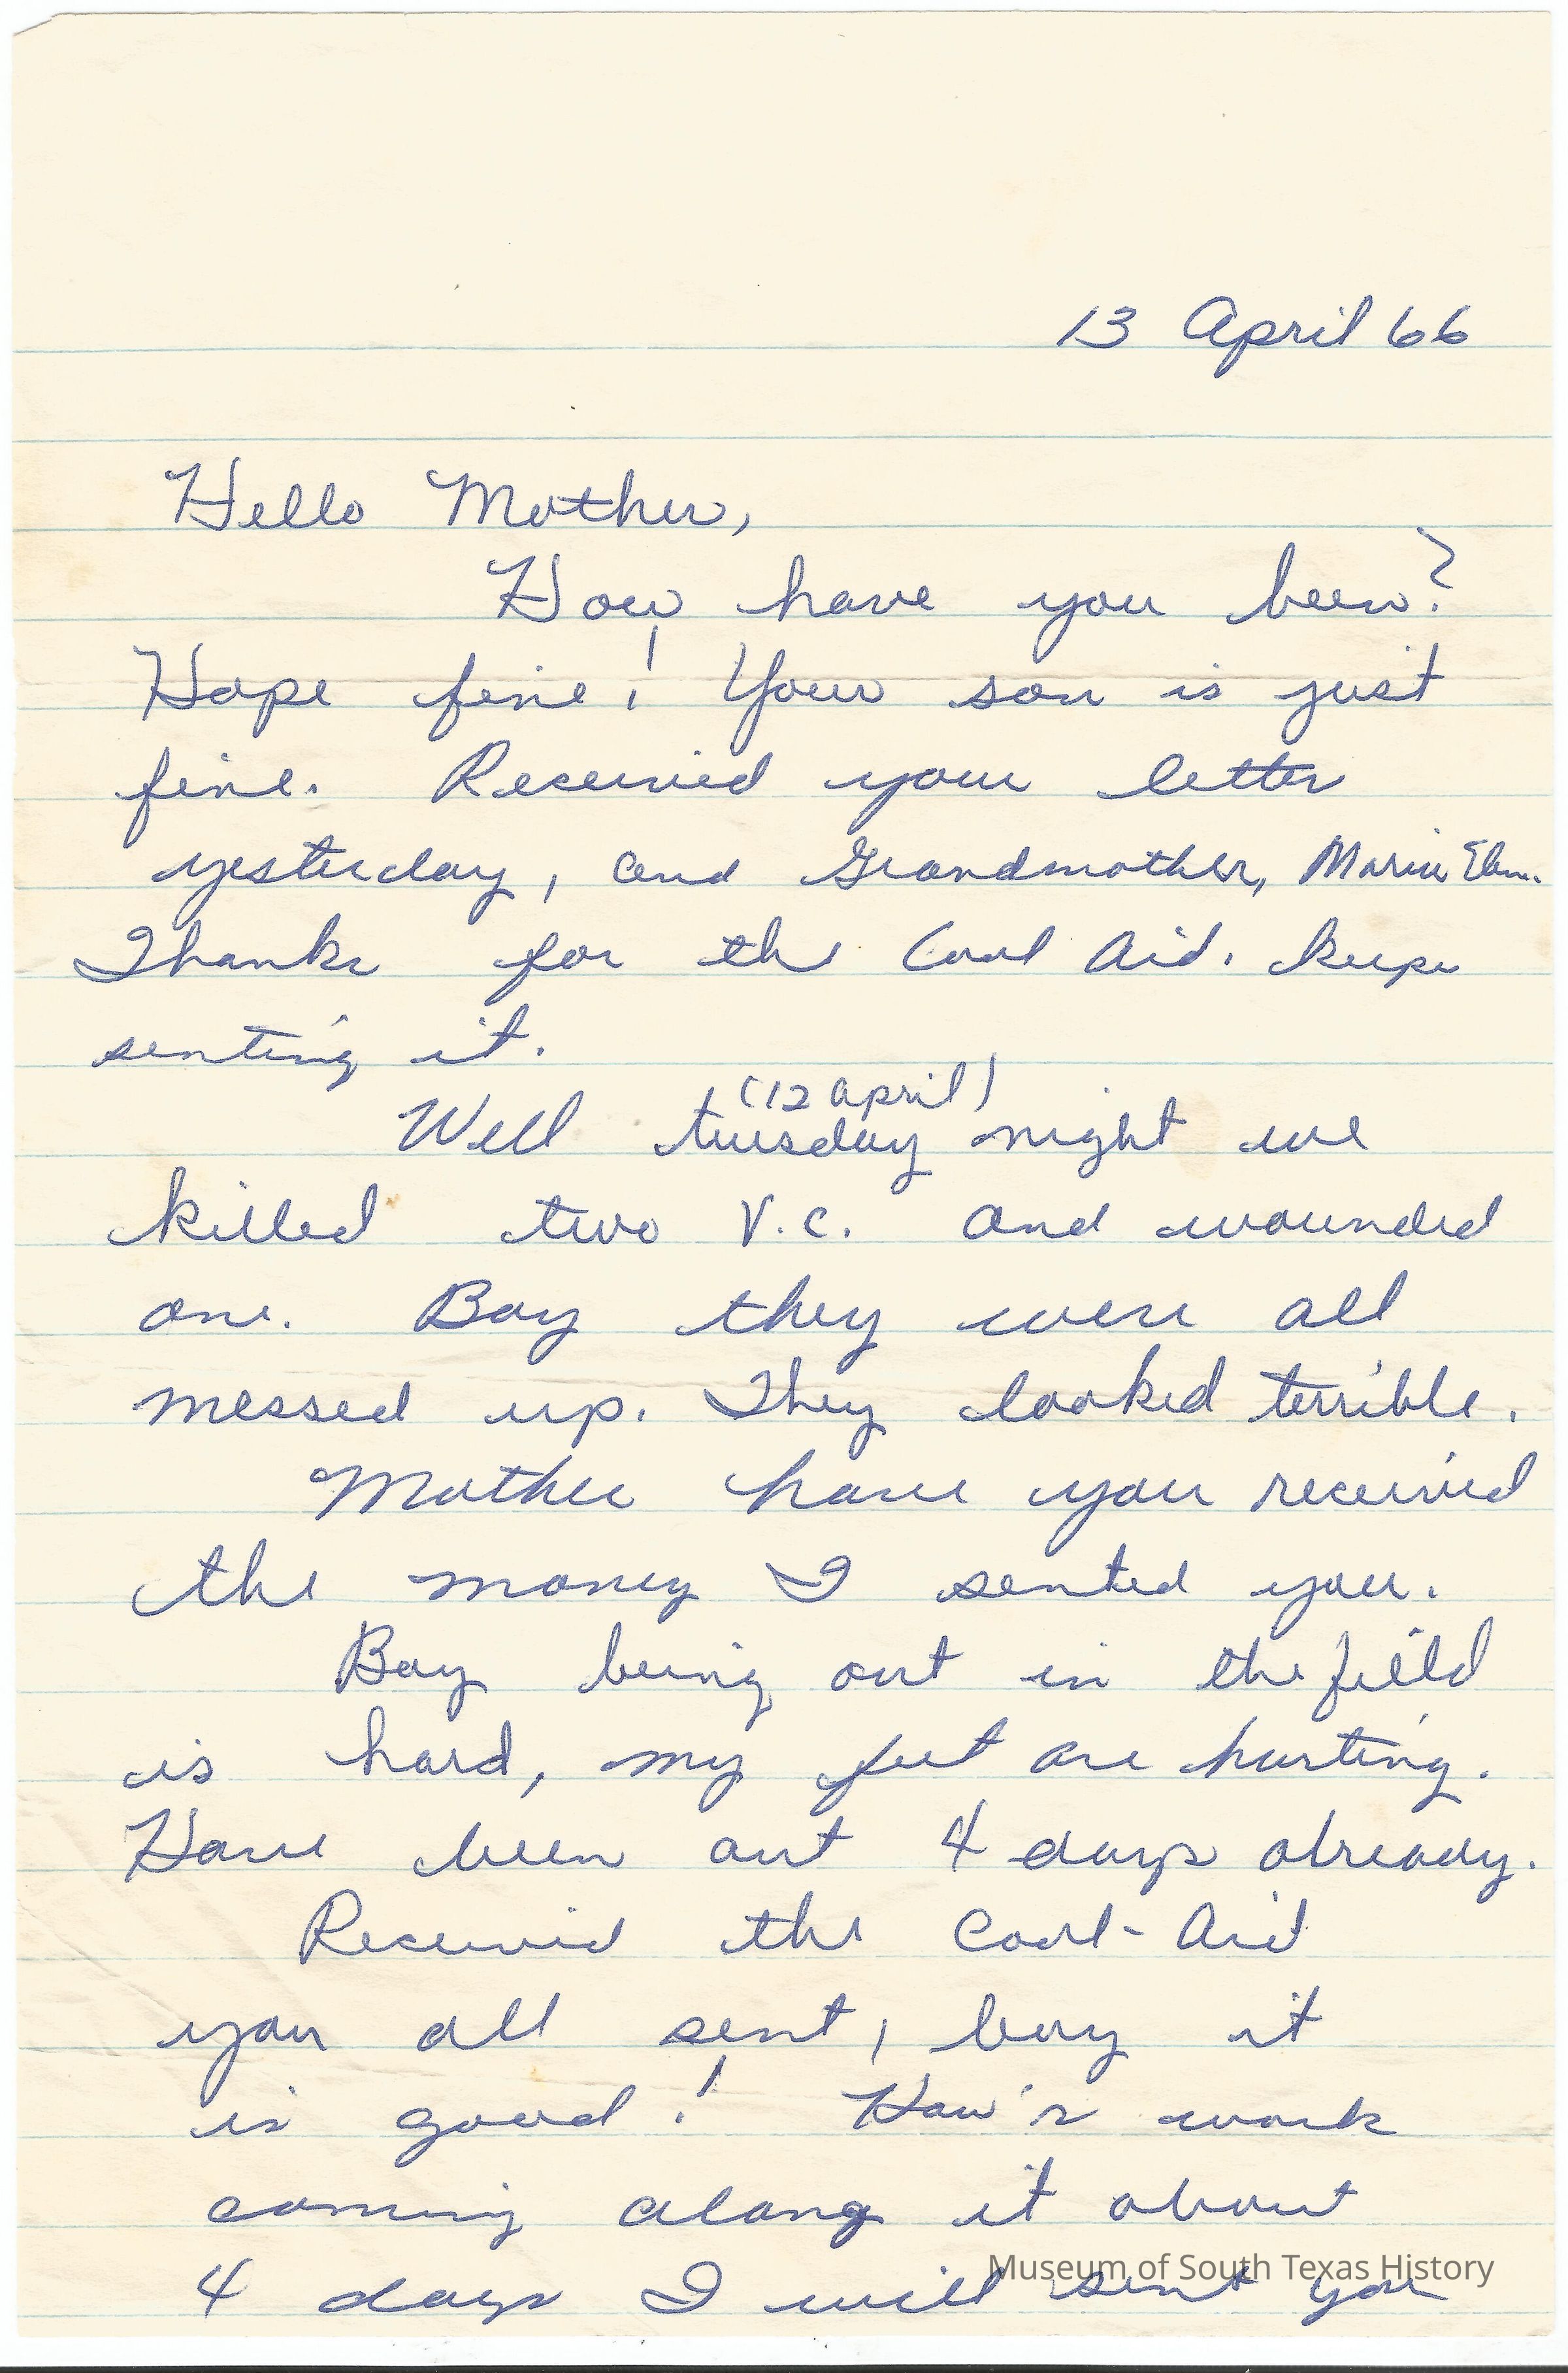 13 April 66
Hello Mother,
How have you been?
Hope fine! Your son is just
fine. Received your letter
yesterday, and Grandmother, Maria
Thanks for the Cool Aid. keepe
senting it.
(12 April)
Well tuesday night we
killed two V.C. and wounded
one. Boy they were all
messed up. They looked terrible.
Mother have you received
the money I sented you.
Boy being out in the field
is hard, my feet are hurting.
Have been out 4 days already.
Received the Cool-Aid
you all sent, boy it
is good! How's work
coming along it about
4 days I will sent you
Museum of South Texas History